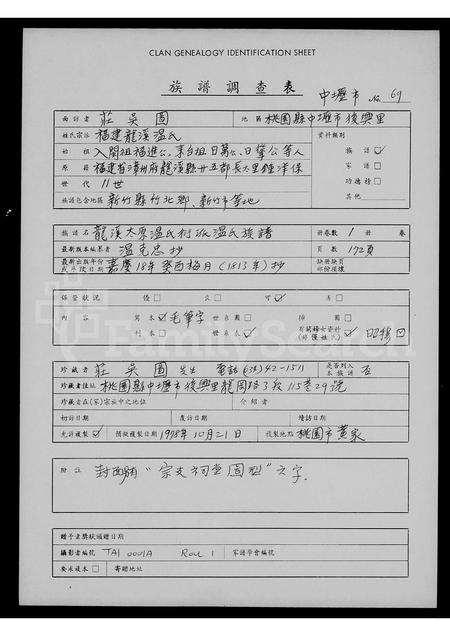 CLAN GENEALOGY IDENTIFICATION SHEET
族譜調查表 中壢市 No 69
面訪者 莊吳圓 地區 桃園縣中壢市復興里
姓氏宗派 福建龍溪温氏 資料類別
始祖 入閩祖福進公, 來台祖日萬公, 日肇公等人 族譜 ✓
原籍 福建省漳州府龍溪縣廿五都長太里鍾洋保 家譜 □
世代 11世 功德榜 □
族譜包含地區 新竹縣竹北鄉、新竹市等地 其他 □
族譜名 龍溪太原温氏衍派温氏族譜 冊卷數 1 冊 卷
最新版本編纂者 温克忠抄 頁數 172頁
最新出版年份或序陵日期 嘉慶18年癸酉梅月(1813年)抄 缺冊缺頁部份損壞
保管狀況 優 □ 良 □ 可 ✓ 劣 □
內容 寫本 ✓ 毛筆字 世系圖 □ 掃圖 □
刊本 □ 世系表 ✓ 有關婦女資料
珍藏者 莊吳圓先生 電話(034)42-1511 是否列入本族譜 否
珍藏者住址 桃園縣中壢市復興里龍岡路3段115巷29號
珍藏者在(家)宗派中之地位 介紹者
初訪日期 復訪日期 續訪日期
允許複製 ✓ 預擬複製日期 1978年10月21日 複製地點 桃園市黄家
附註 封面附“宗支祠堂圖型”文字.
贈予者獎狀頒贈日期
攝影者編號 TAI 0001A ROLL 1 家譜學會編號
要求複本 □ 寄贈地址
FamilySearch